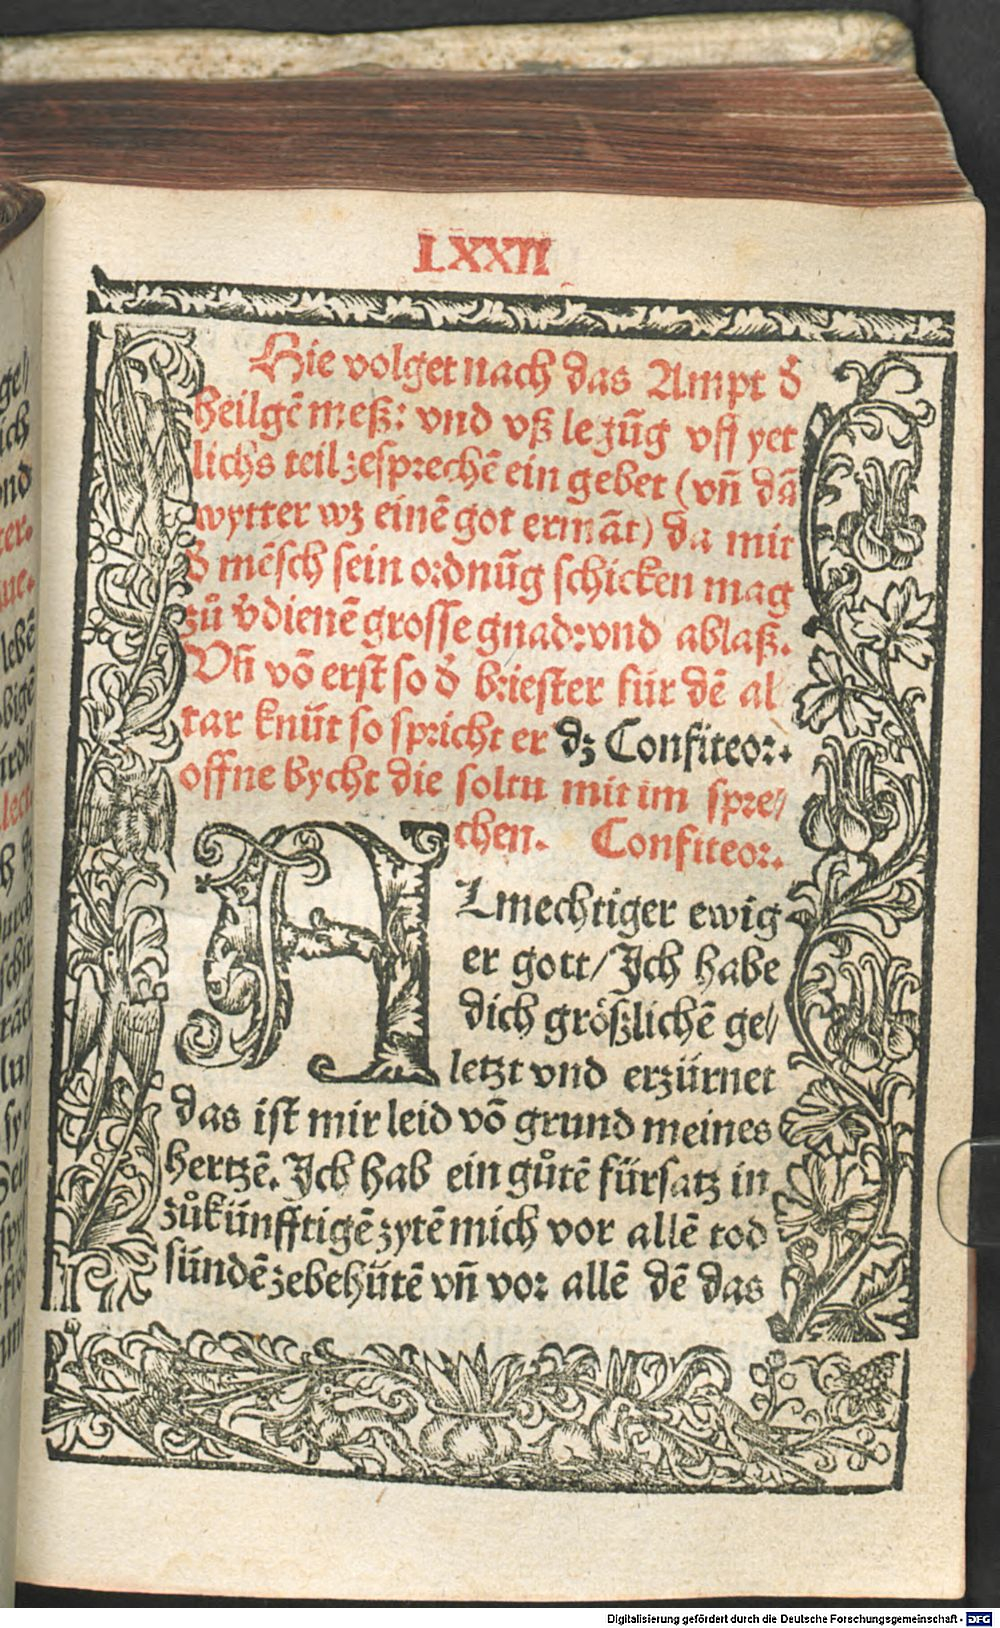 LXXII
Hie volget nach das Ampt d̕
heilgē meß: vnd vß lezūg vff yet
lichs teil zesprechē ein gebet (vn̄ dā
wytter wz einē got ermāt) da mit
d̕ mēsch sein ordnūg schicken mag
zů v̕dienē grosse gnad: vnd ablaß.
Vn̄ vō erst so d̕ briester für dē al
tar knūt so spricht er dz Confiteor.
offne bycht die soltu mit im spre//
chen. Confiteor.
ALmechtiger ewig
er gott/ Ich habe
dich größlichē ge//
letzt vnd erzürnet
das ist mir leid vō grund meines
hertzē. Ich hab ein gůtē fürsatz in
zůkünfftigē zytē mich vor allē tod
sündē zebehütē vn̄ vor allē dē das
ge/
ich
ond
ter.
ine.
lebē
bigē
Digitalisierung gefördert durch die Deutsche Forschungsgemeinschaft - DFG